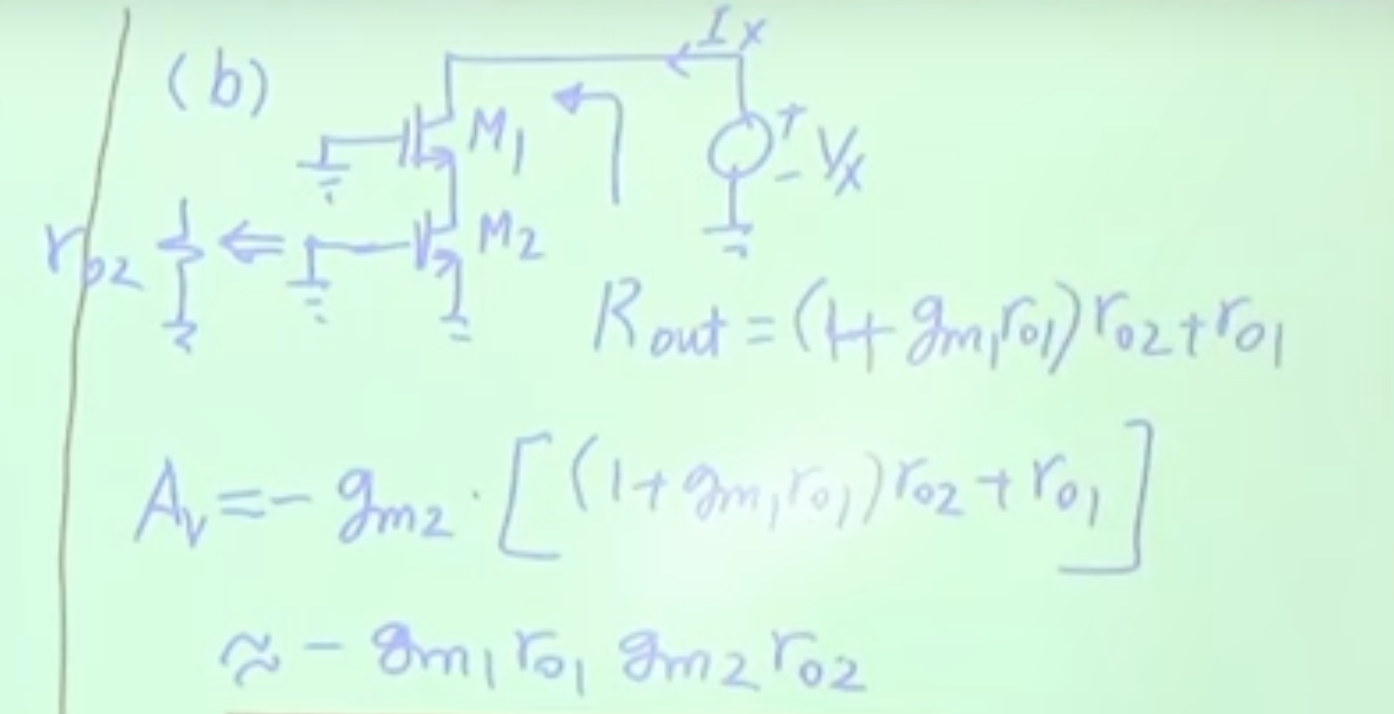 (b)
I_X
M_1
+
- V_X
r_{o2}
M_2
R_{out} = (1 + g_{m1} r_{o1}) r_{o2} + r_{o1}
A_v = - g_{m2} · [(1 + g_{m1} r_{o1}) r_{o2} + r_{o1}]
≈ - g_{m1} r_{o1} g_{m2} r_{o2}